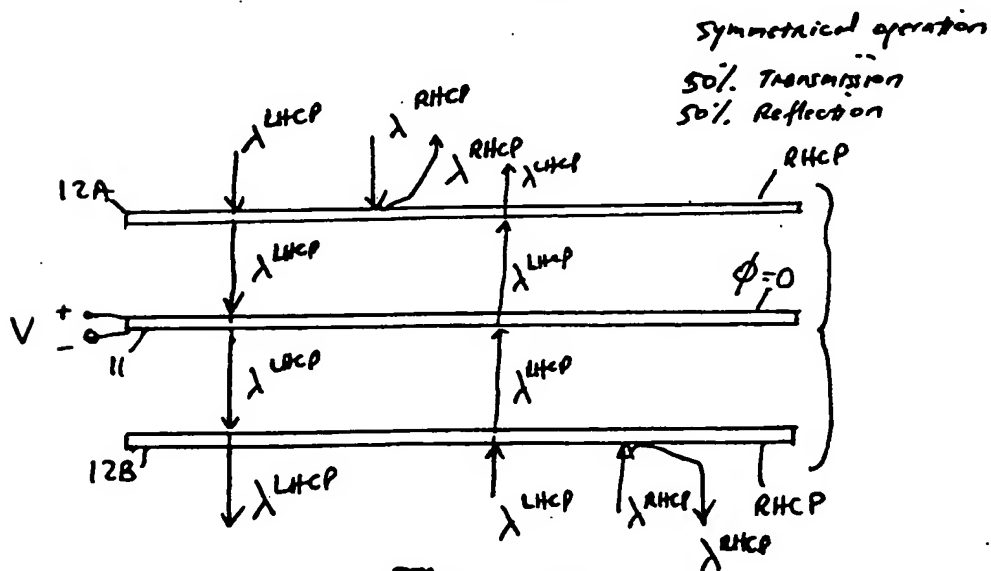 Symmetrical operation
50% Transmission
50% Reflection
λ^LHCP
λ^RHCP
λ^RHCP
λ^LHCP
RHCP
12A
λ^LHCP
λ^LHCP
φ=0
V + -
11
λ^LHCP
λ^LHCP
12B
λ^LHCP
λ^LHCP
λ^RHCP
RHCP
λ^RHCP